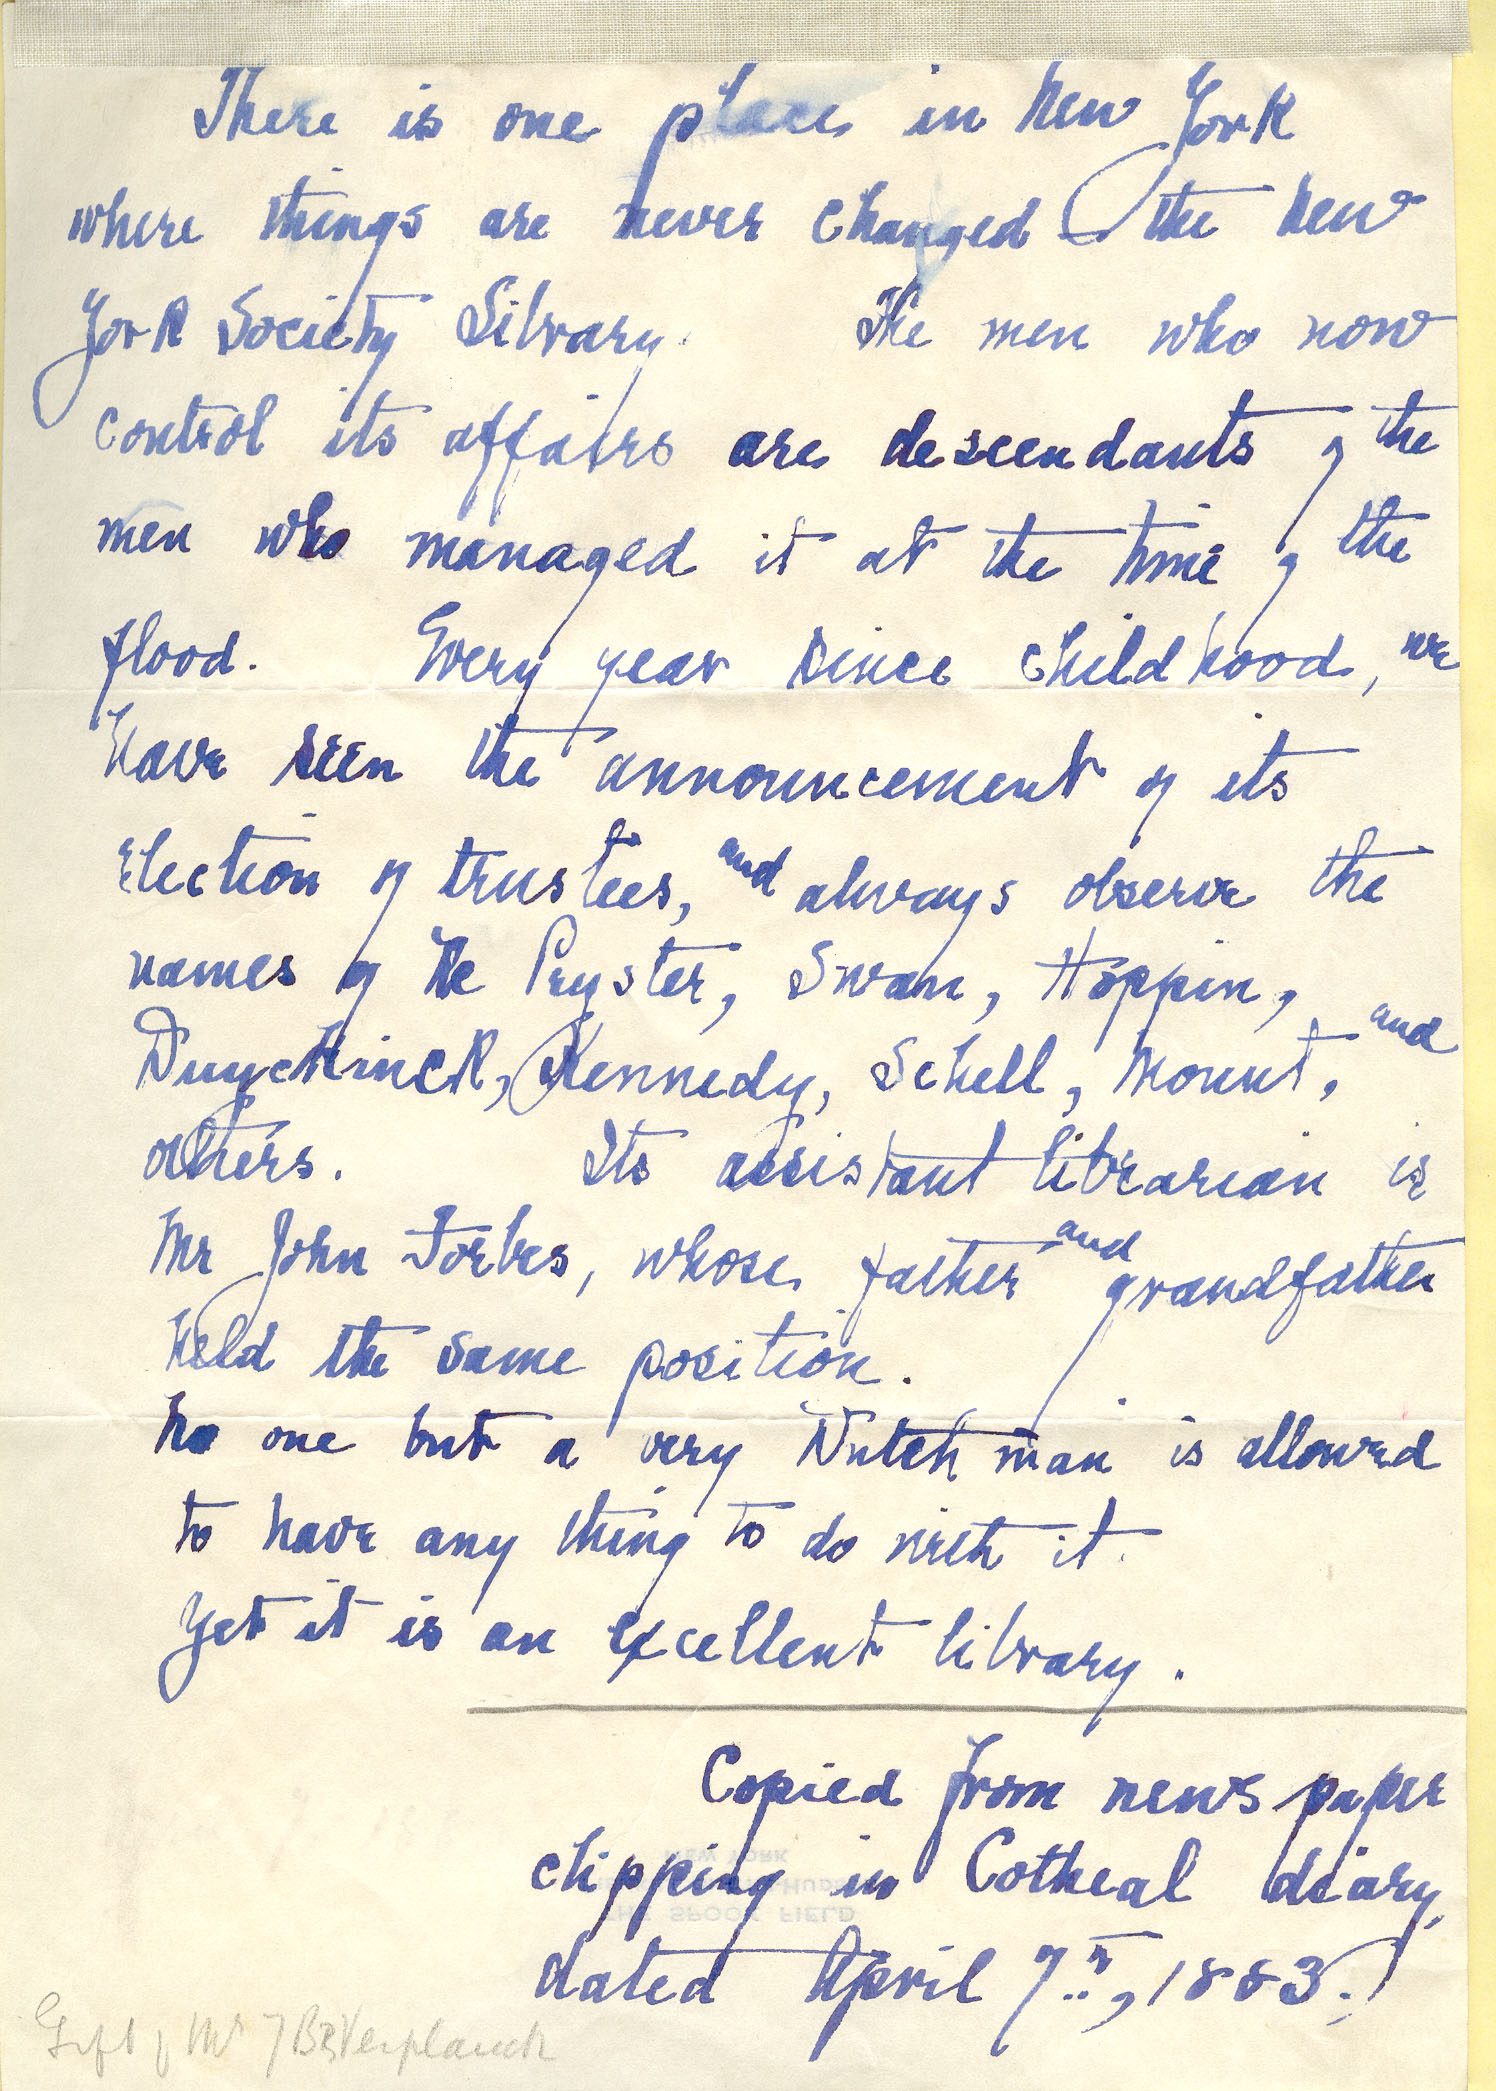 There is one place in New York
where things are never changed – the New
York Society Library. The men who now
control its affairs are descendants of the
men who managed it at the time of the
flood. Every year since childhood, we
have seen the announcement of its
election of trustees, and always observe the
names of De Peyster, Swan, Hoppin,
Duyckinck, Kennedy, Schell, Mount, and
others. Its assistant librarian is
Mr John Forbes, whose father and grandfather
held the same position.
No one but a very Dutch man is allowed
to have any thing to do with it.
Yet it is an excellent library.
Copied from news paper
clipping in Cotheal diary,
dated April 7th, 1883.
NEW YORK
THE SPOOK FIELD
Gift of Mr Verplanck